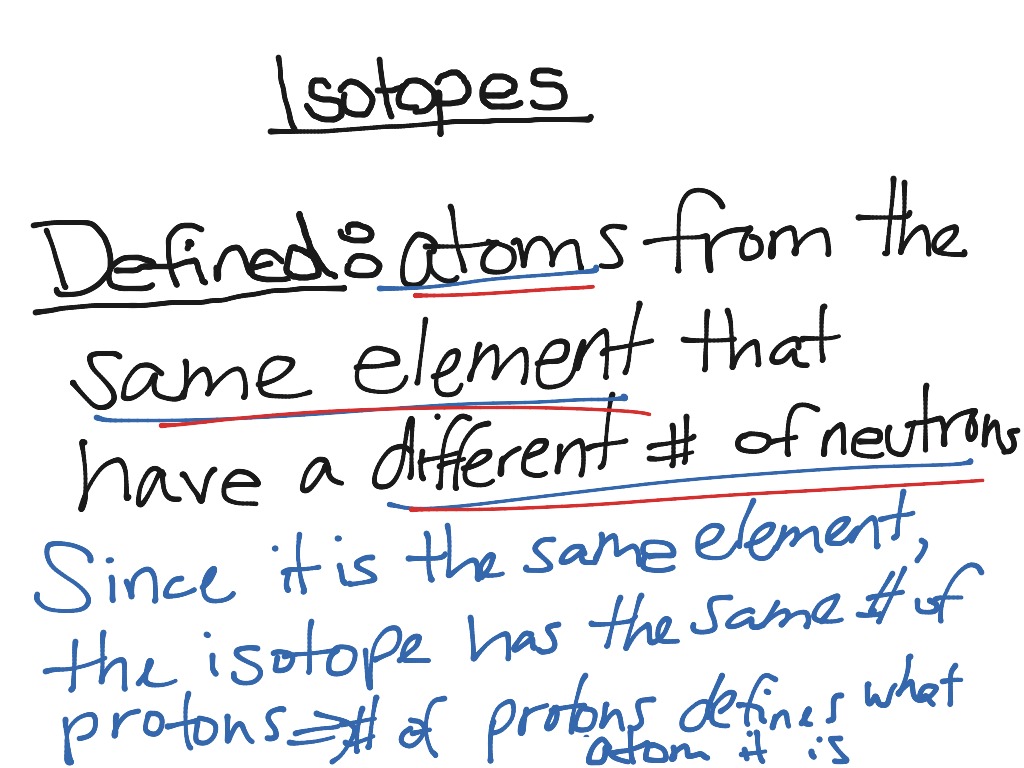 Isotopes
Defined: atoms from the
same element that
have a different # of neutrons
Since it is the same element,
the isotope has the same # of
protons ⇒ # of protons defines what
atom it is